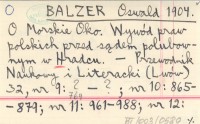 O BALZER Oswald 1904.
O Morskie Oko. Wywód praw
polskich przed sądem polubow-
nym w Hradcu. – Przewodnik
Naukowy i Literacki (Lwów)
32, nr 9: ? - ? ; nr 10: 865-
-879; nr 11: 961-988; nr 12: